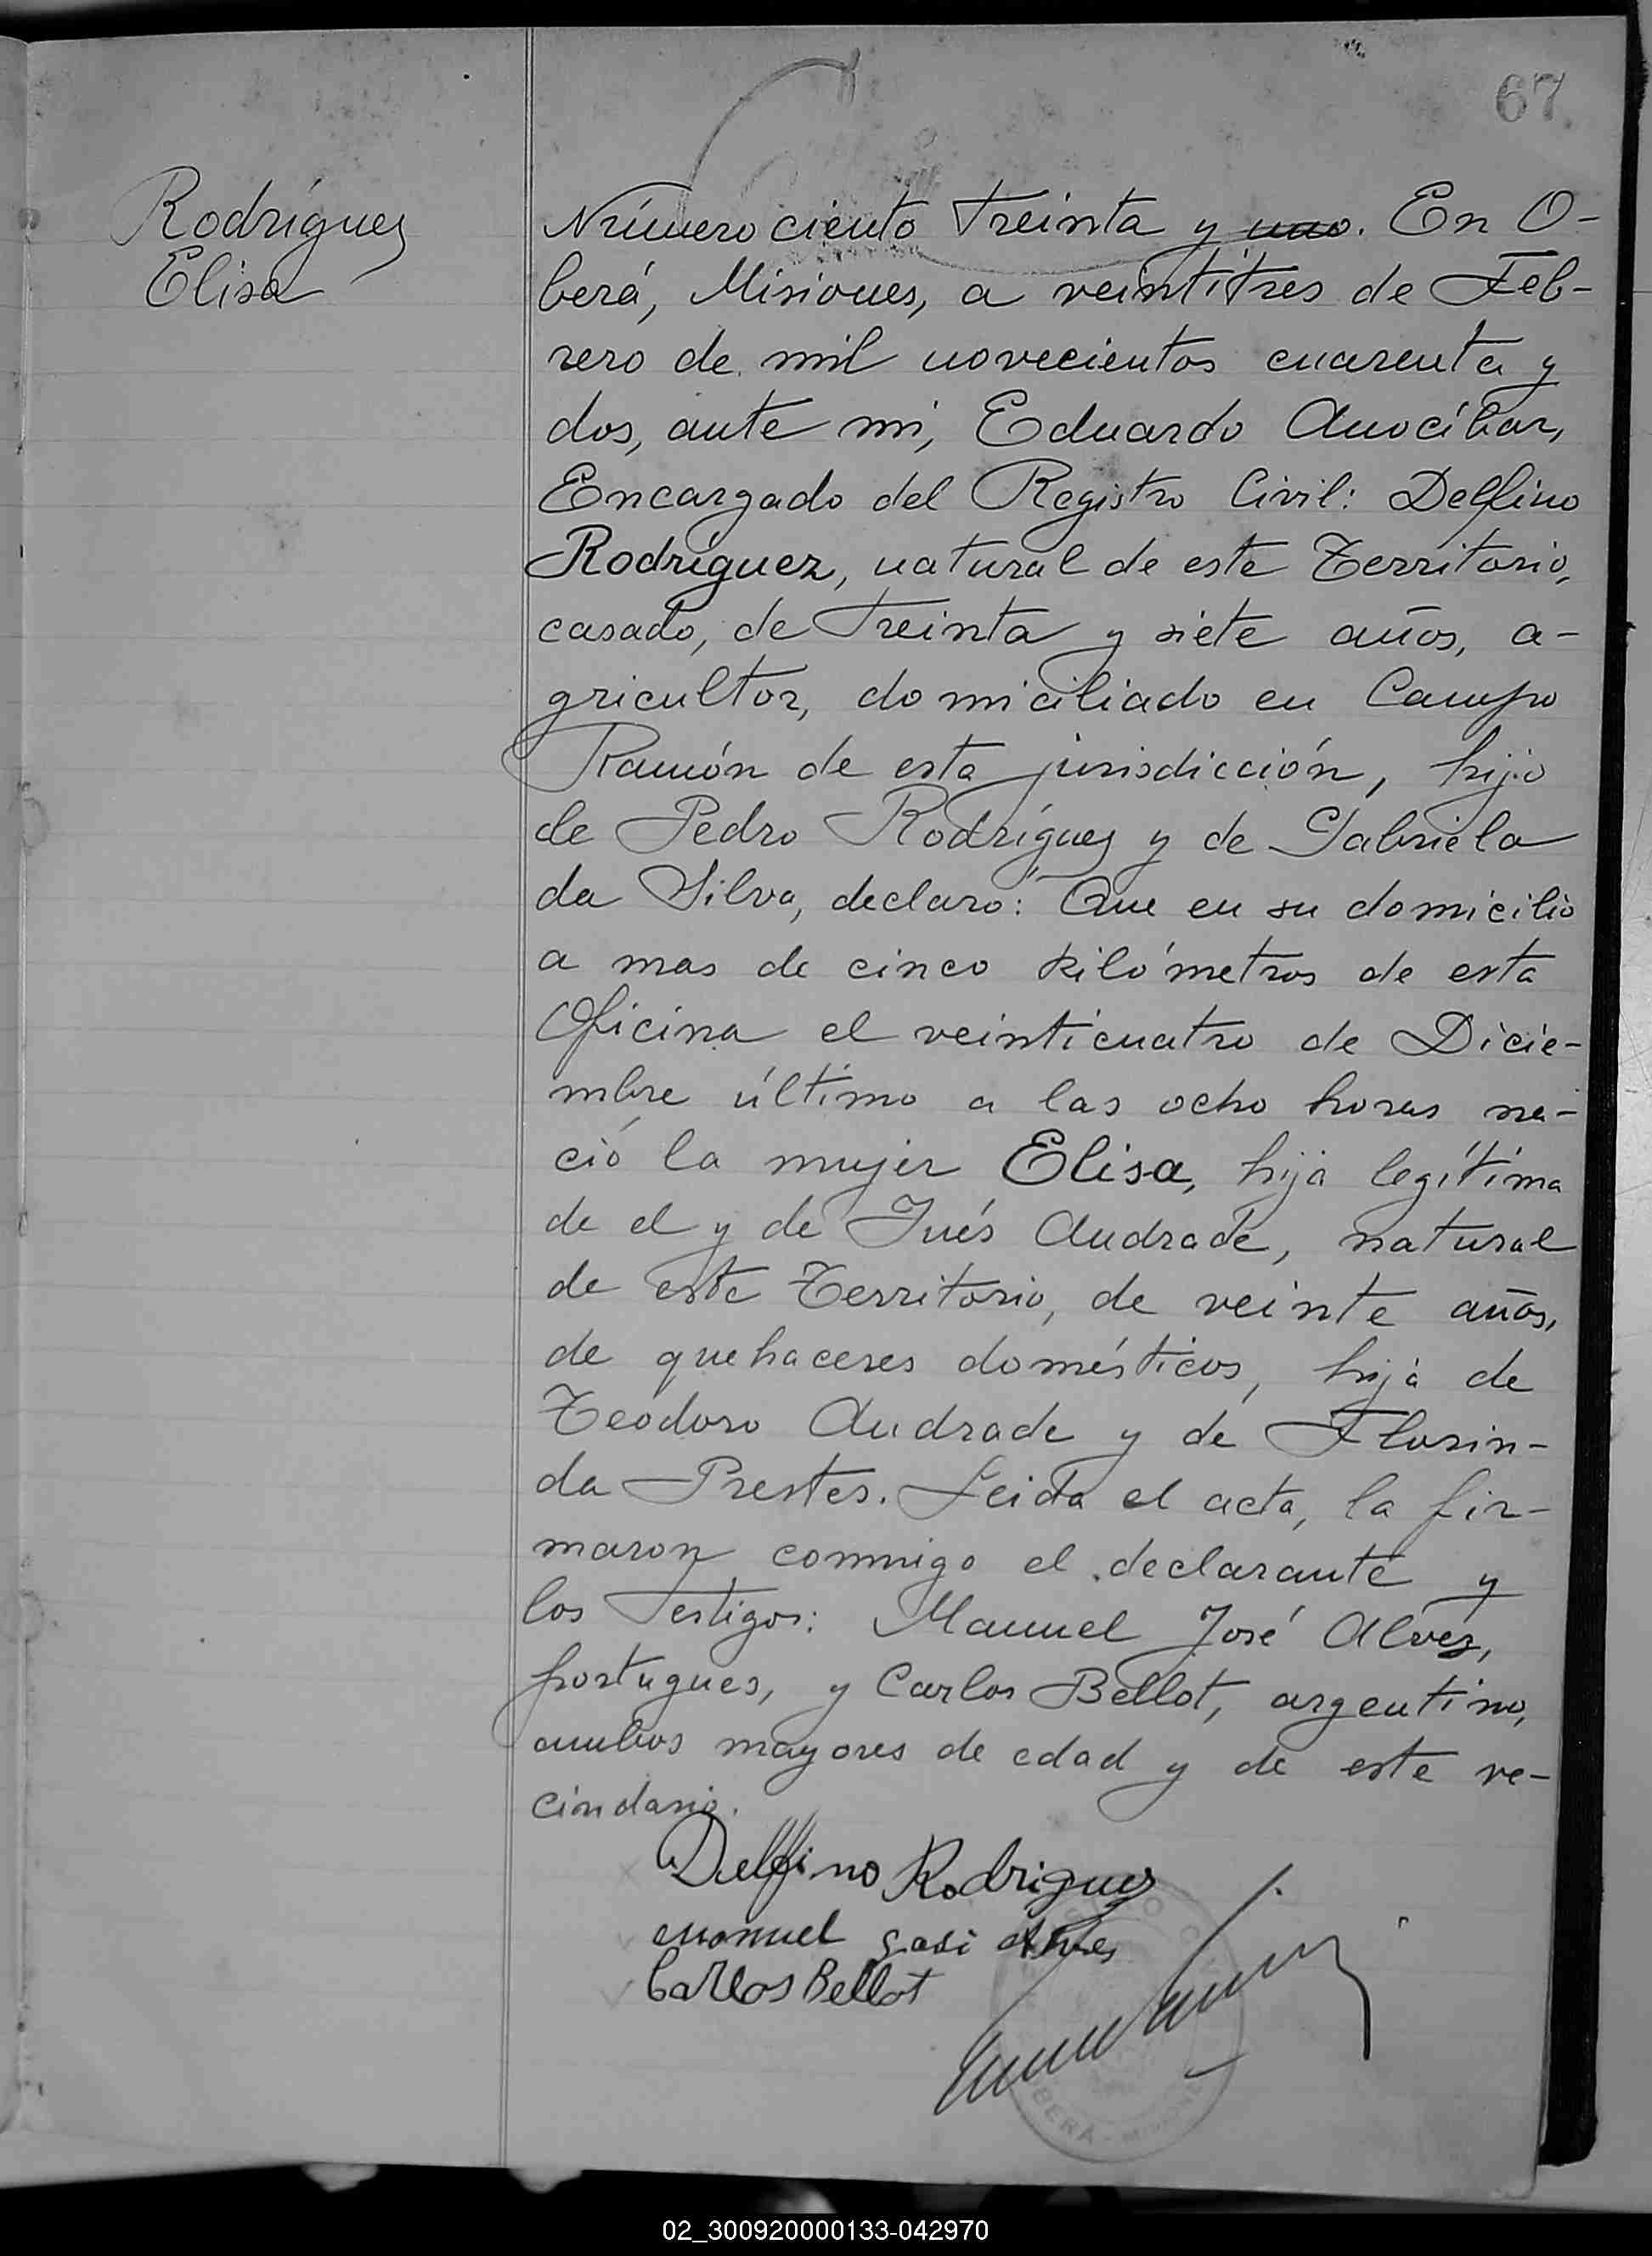 67
Rodríguez
Elisa
Número ciento treinta y uno. En O-
berá, Misiones, a veintitres de Feb-
rero de mil novecientos cuarenta y
dos, ante mi, Eduardo Anocíbar,
Encargado del Registro Civil: Delfino
Rodríguez, natural de este Territorio,
casado, de treinta y siete años, a-
gricultor, domiciliado en Campo
Ramón de esta jurisdicción, hijo
de Pedro Rodríguez y de Gabriela
da Silva, declaro: Que en su domicilio
a mas de cinco kilómetros de esta
Oficina el veinticuatro de Dicie-
mbre último a las ocho horas na-
ció la mujer Elisa, hija legítima
de el y de Inés Andrade, natural
de este Territorio, de veinte años,
de quehaceres domésticos, hija de
Teodoro Andrade y de Florin-
da Prestes. Leida el acta, la fir-
maron conmigo el declarante y
los testigos: Manuel José Alvez,
portugues, y Carlos Bellot, argentino,
ambos mayores de edad y de este ve-
cindario.
Delfino Rodriguez
Manuel
Carlos Bellot
BERÁ - 
02_300920000133-042970